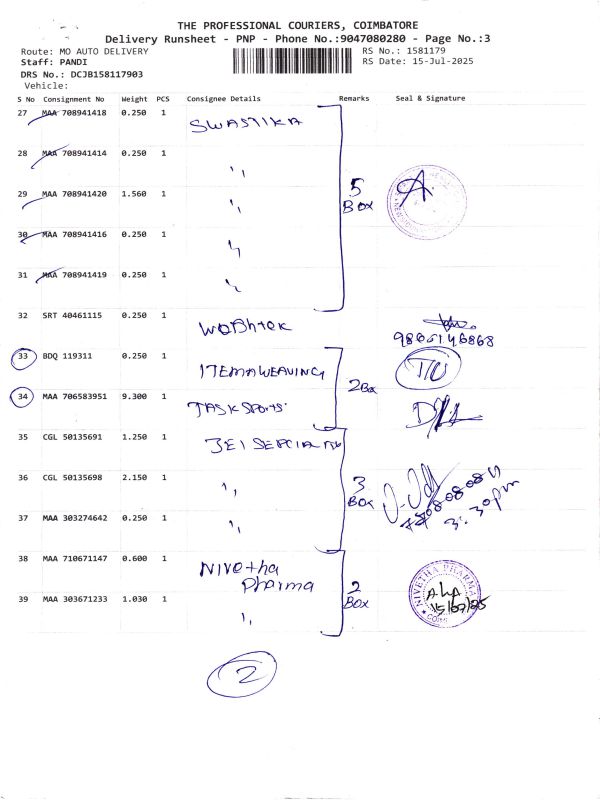 THE PROFESSIONAL COURIERS, COIMBATORE
Delivery Runsheet - PNP - Phone No.:9047080280 - Page No.:3
Route: MO AUTO DELIVERY RS No.: 1581179
Staff: PANDI RS Date: 15-Jul-2025
DRS No.: DCJB158117903
Vehicle:
S No Consignment No Weight PCS Consignee Details Remarks Seal & Signature
27 MAA 708941418 0.250 1 SWASTIKA
28 MAA 708941414 0.250 1 ,,
29 MAA 708941420 1.560 1 ,, 5 BOX
30 MAA 708941416 0.250 1 ,,
31 MAA 708941419 0.250 1 ,,
32 SRT 40461115 0.250 1
33 BDQ 119311 0.250 1 ITEMAWEAVING 2 Box
34 MAA 706583951 9.300 1 TASK SPORTS
35 CGL 50135691 1.250 1 JEI
36 CGL 50135698 2.150 1 ,, 3 BOX
37 MAA 303274642 0.250 1 ,, 3:30pm
38 MAA 710671147 0.600 1 Nivetha Pharma 2 BOX NIVETHA PHARMA
39 MAA 303671233 1.030 1 ,, 15/07/25
2